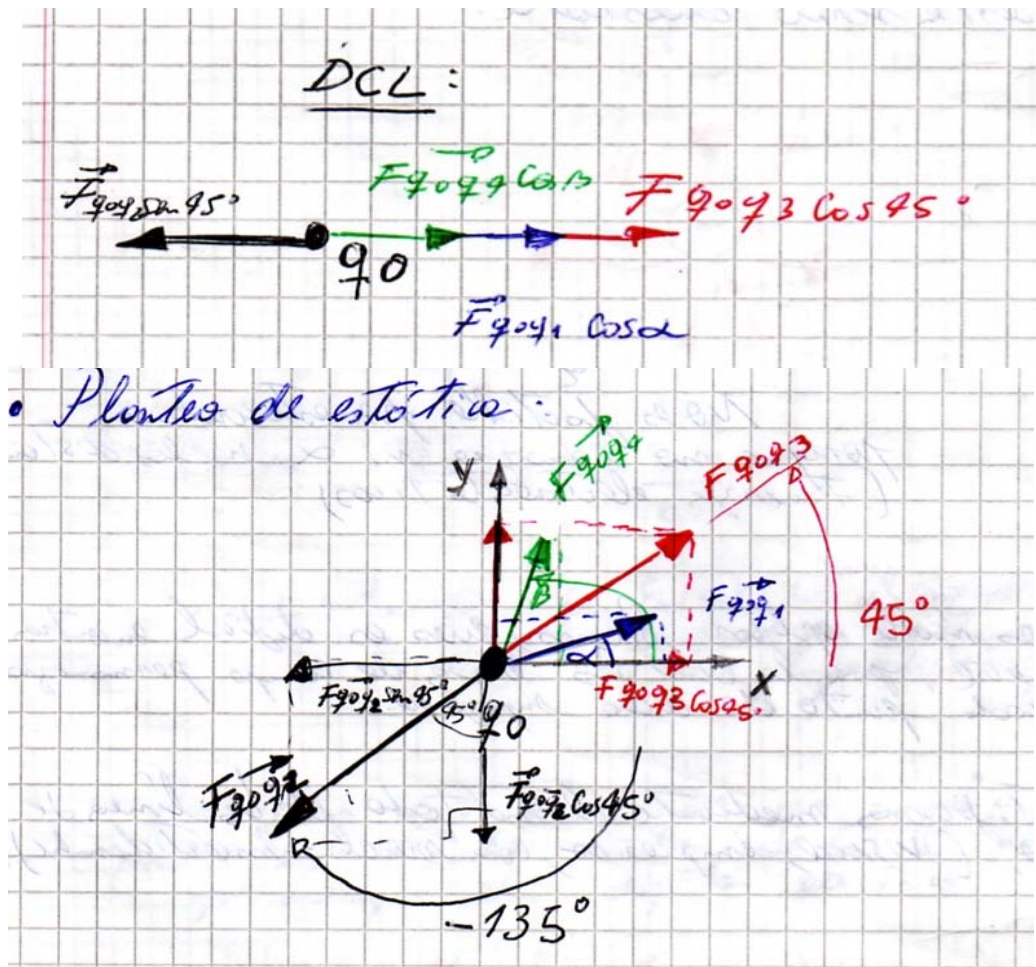 DCL:
F⃗q0q2 sen 45°
F⃗q0q4 Cosβ
F⃗q0q3 Cos 45°
q0
F⃗q0q1 Cosα
• Planteo de estática.
y
F⃗q0q4
F⃗q0q3
β
F⃗q0q1
45°
α
x
F⃗q0q2 sen 45°
45°
q0
F⃗q0q3 Cos45°
F⃗q0q2
F⃗q0q2 Cos45°
-135°